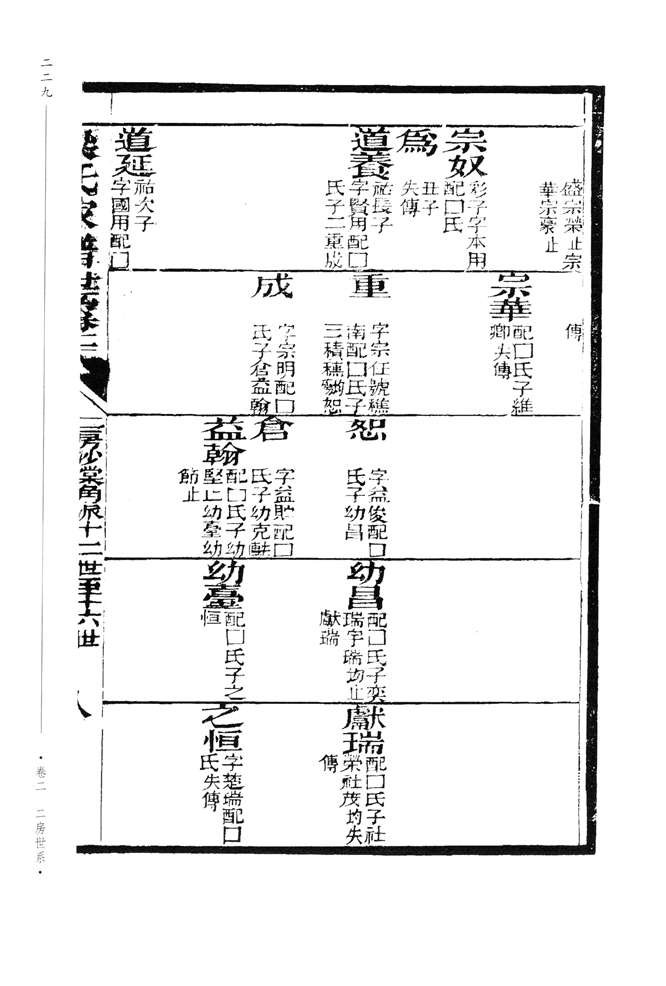 盛宗榮止宗
華宗豪止
宗奴
彩子字本用
配囗氏
為
丑子
失傳
道養
祐長子
字賢用配囗
氏子二重成
道延
祐次子
字國用配囗
傳
宗華
配囗氏子維
卿失傳
重
字宗任號樵
南配囗氏子
三積穗勤恕
成
字宗明配囗
氏子倉益翰
恕
字益俊配囗
氏子幼昌
倉
字益貯配囗
氏子幼克
益翰
配囗氏子幼
堅止幼臺幼
節止
幼昌
配囗氏子奕
瑞字瑞均止
獻瑞
幼臺
配囗氏子之
恒
獻瑞
配囗氏子社
榮社茂均失
傳
之恒
字楚瑞配囗
氏失傳
氏家譜世系二
二房沙棠角派十二世至十六世
八
二二九
·卷二 二房世系·